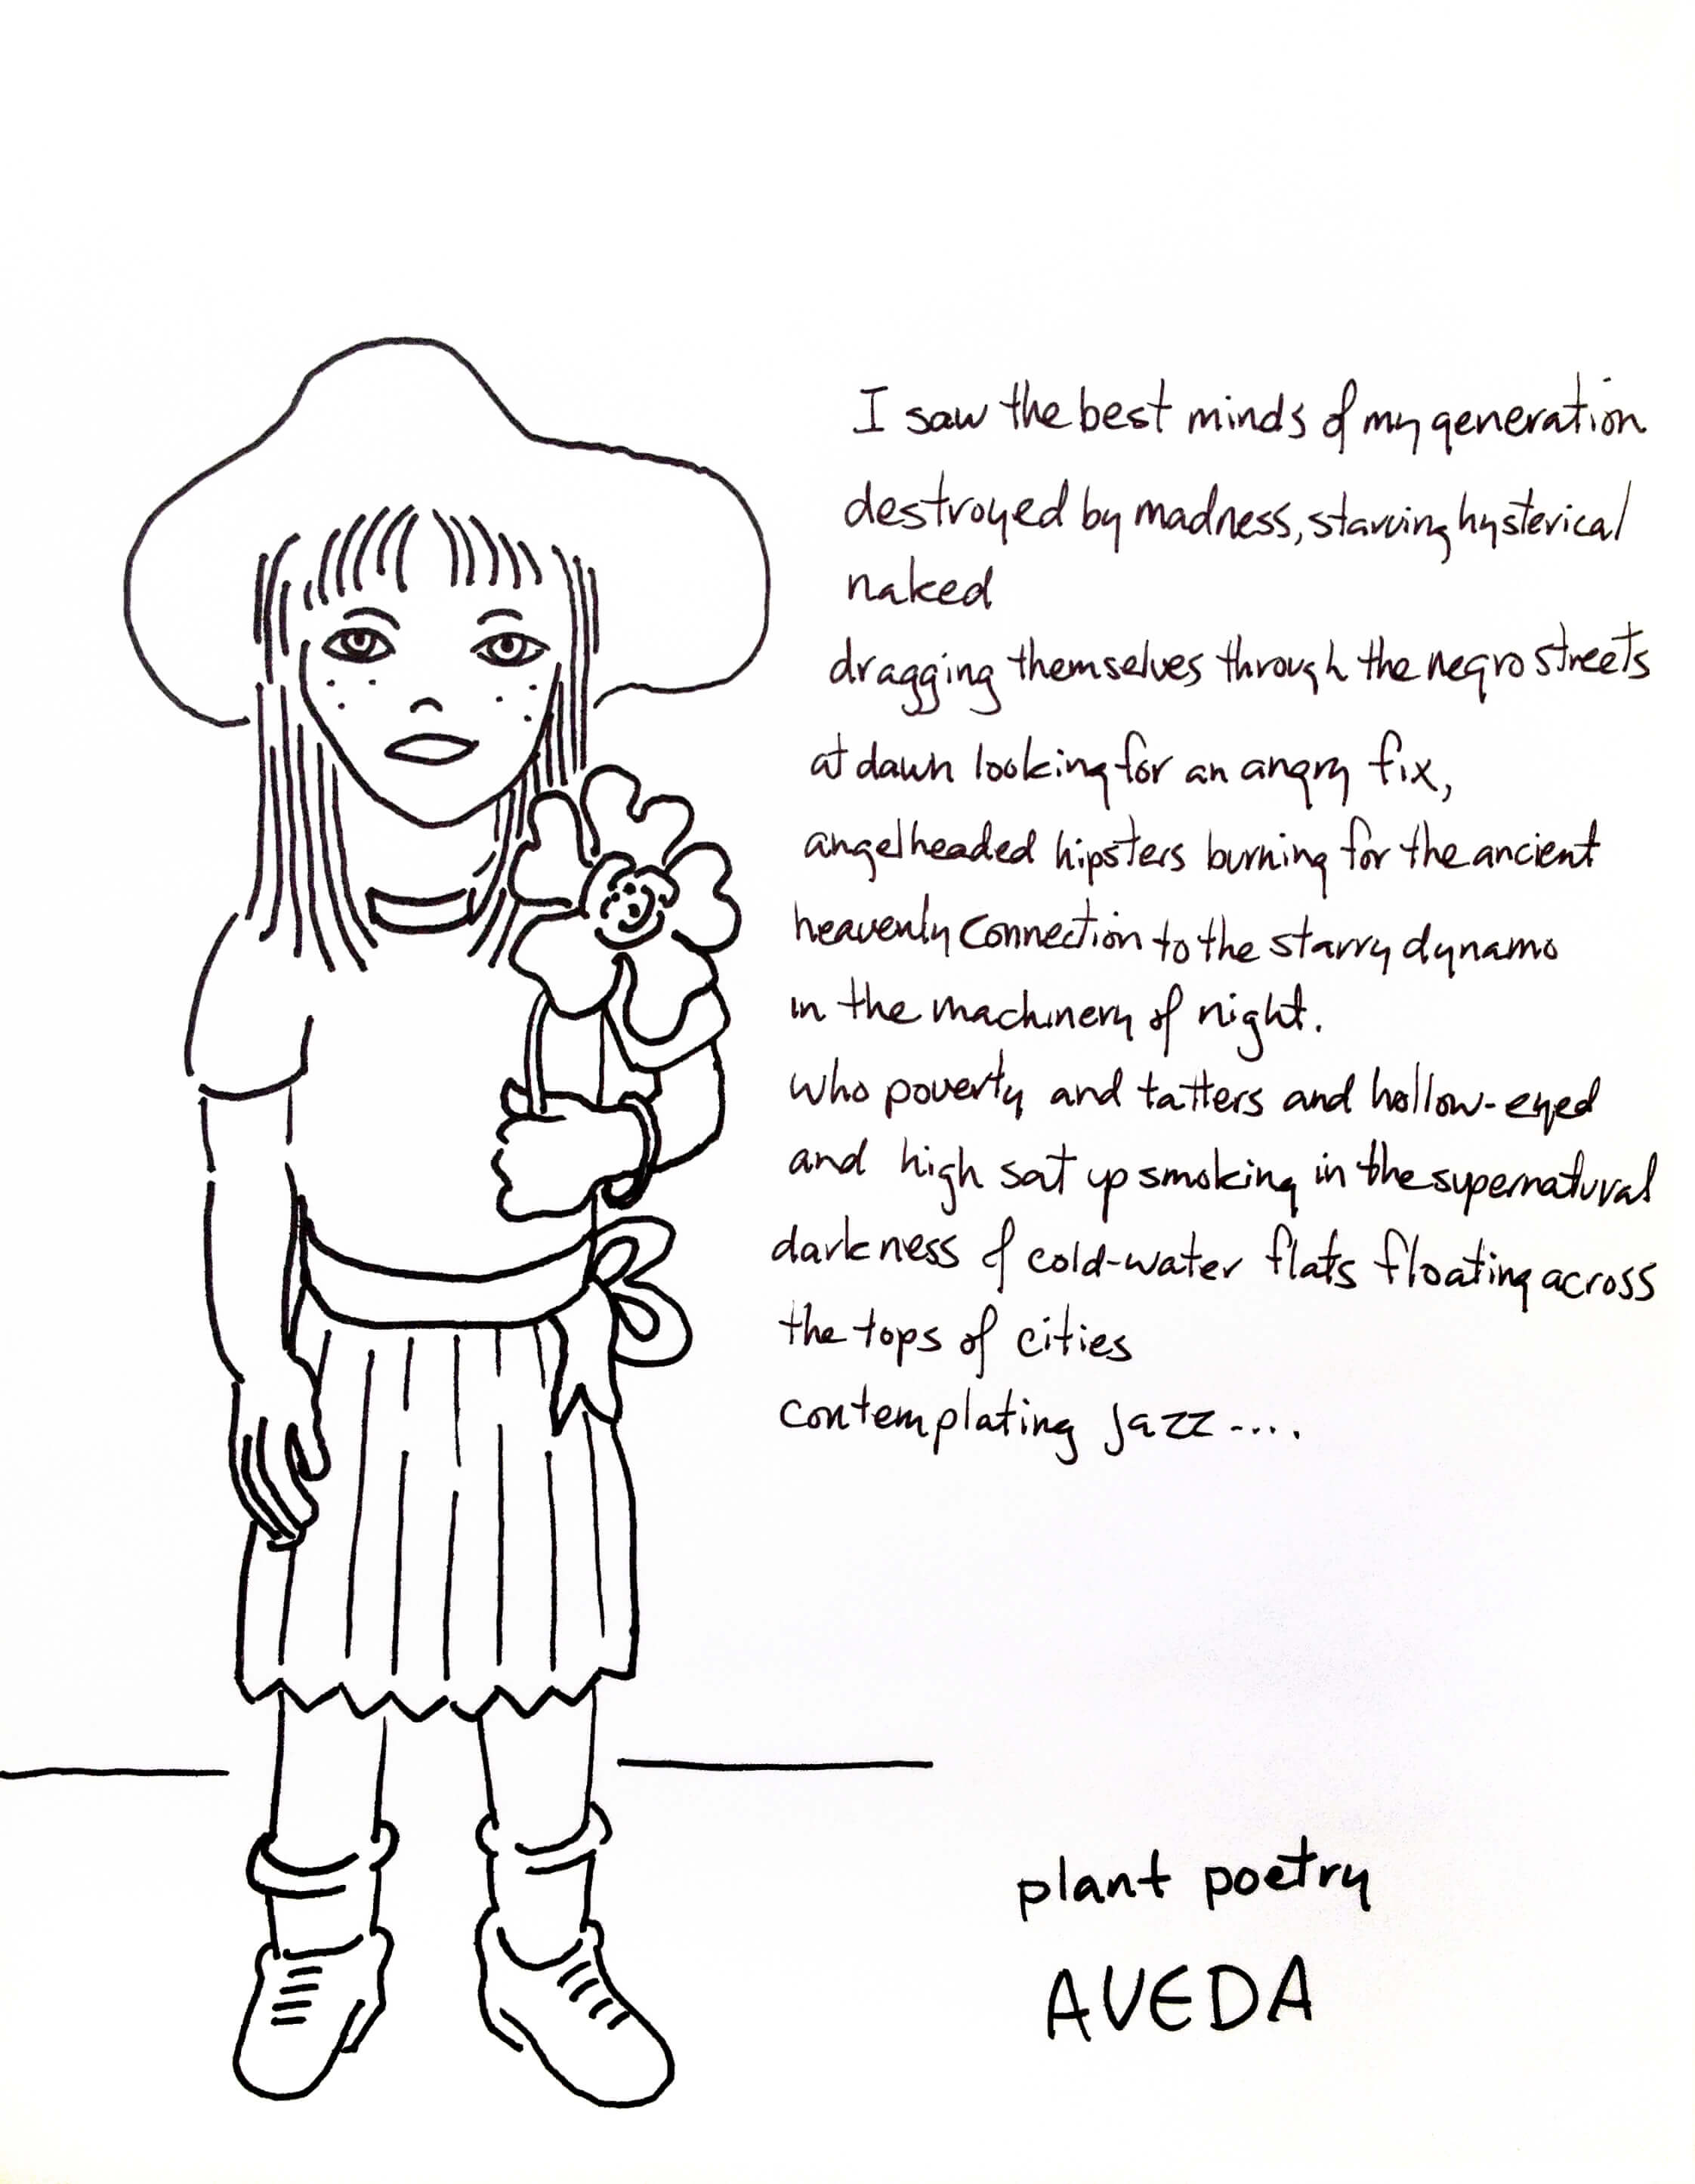 I saw the best minds of my generation
destroyed by madness, starving hysterical
naked
dragging themselves through the negro streets
at dawn looking for an angry fix,
angelheaded hipsters burning for the ancient
heavenly connection to the starry dynamo
in the machinery of night.
who poverty and tatters and hollow-eyed
and high sat up smoking in the supernatural
darkness of cold-water flats floating across
the tops of cities
contemplating jazz....
plant poetry
AVEDA